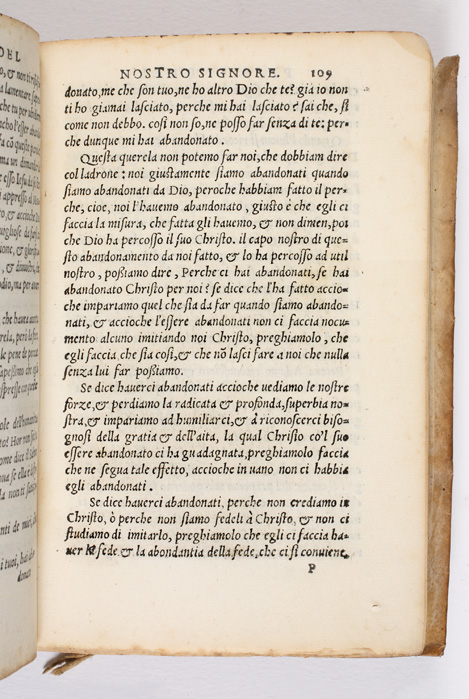 DEL
NOSTRO SIGNORE. 109
donato, me che son tuo, ne ho altro Dio che te? gia io non
ti ho giamai lasciato, perche mi hai lasciato? sai che, si
come non debbo. così non so, ne posso far senza di te: per=
che dunque mi hai abandonato.
Questa querela non potemo far noi, che dobbiam dire
col ladrone: noi giustamente siamo abandonati quando
siamo abandonati da Dio, peroche habbiam fatto il per=
che, cioe, noi l'hauemo abandonato, giusto è che egli ci
faccia la misura, che fatta gli hauemo, & non dimen, poi
che Dio ha percosso il suo Christo. il capo nostro di que=
sto abandonamento da noi fatto, & lo ha percosso ad util
nostro, possiamo dire, Perche ci hai abandonati, se hai
abandonato Christo per noi? se dice che l'ha fatto accio=
che impariamo quel che sia da far quando siamo abando=
nati, & accioche l'essere abandonati non ci faccia nocu=
mento alcuno imitando noi Christo, preghiamolo, che
egli faccia che sia così, & che nõ lasci fare a noi che nulla
senza lui far possiamo.
Se dice hauerci abandonati accioche uediamo le nostre
forze, & perdiamo la radicata & profonda, superbia no=
stra, & impariamo ad humiliarci, & à riconoscerci biso=
gnosi della gratia & dell'aita, la qual Christo co'l suo
essere abandonato ci ha guadagnata, preghiamolo faccia
che ne segua tale effetto, accioche in uano non ci habbia
egli abandonati.
Se dice hauerci abandonati, perche non crediamo in
Christo, ò perche non siamo fedeli à Christo, & non ci
studiamo di imitarlo, preghiamolo che egli ci faccia ha=
uer la fede & la abondantia della fede, che ci si conuiene,
P
donato